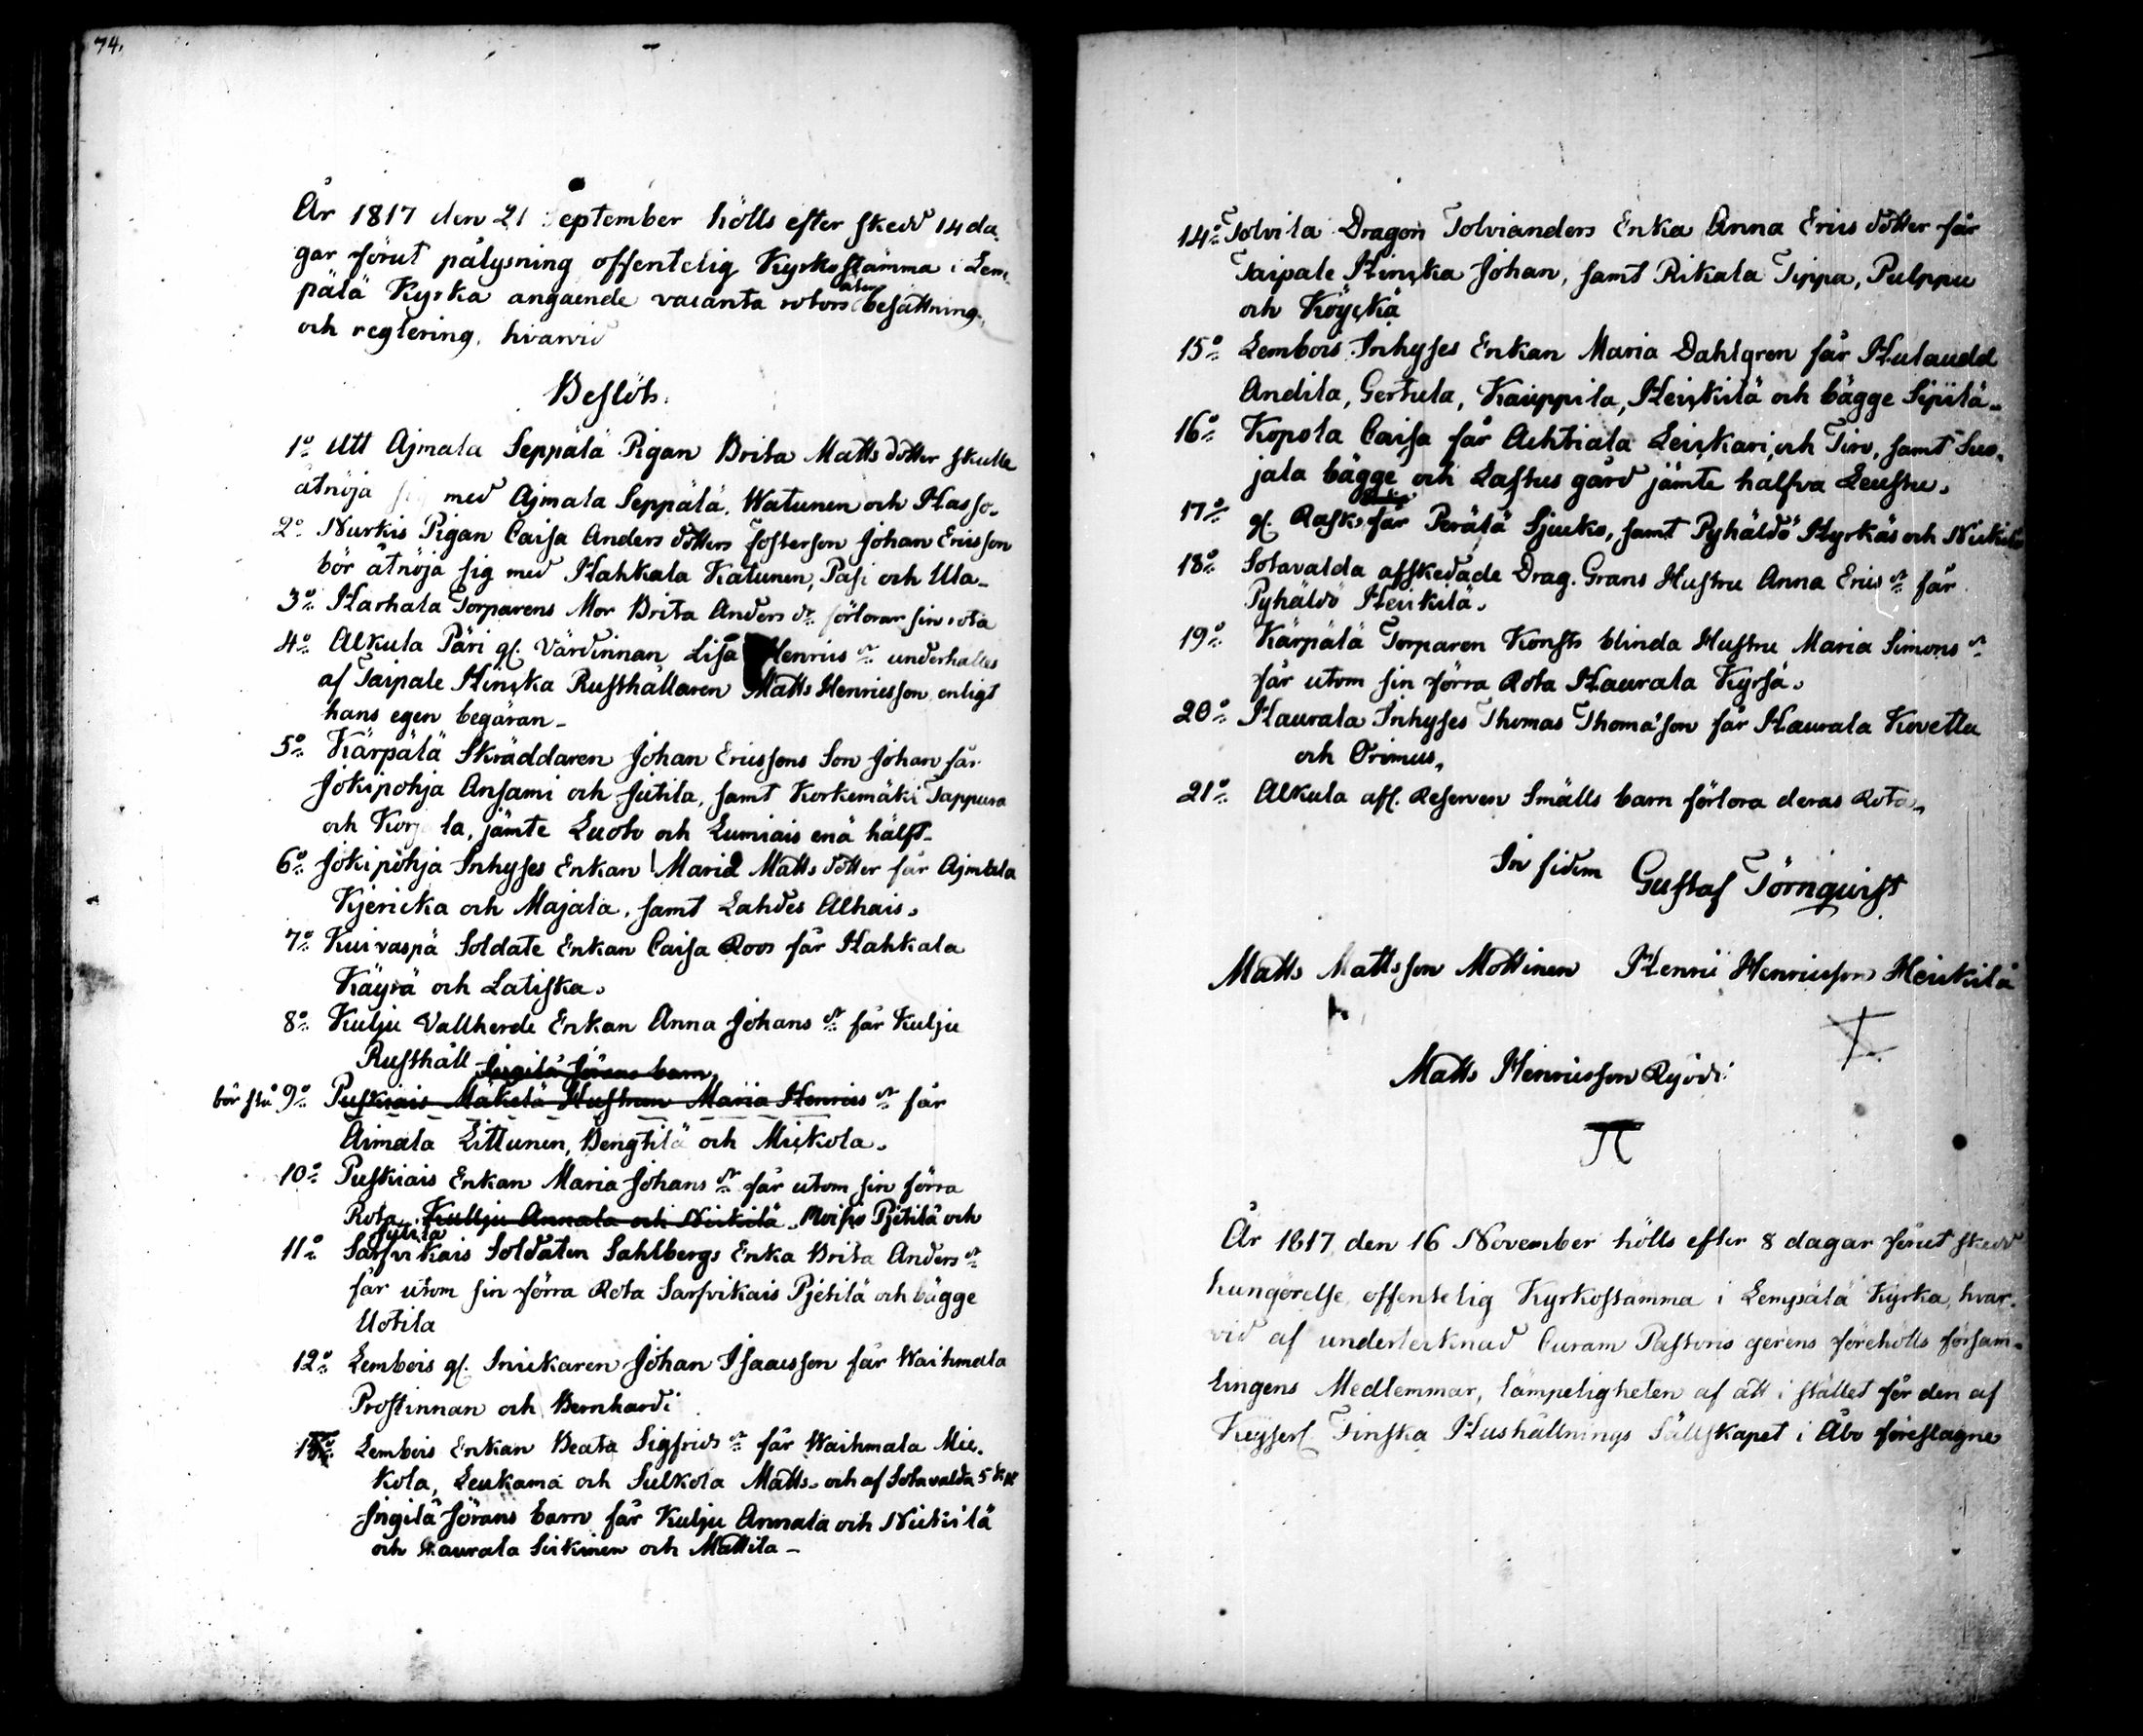 74.
År 1817 den 21 September hölls efter skedd 14 da
gar förut pålysning offentelig Kyrkostämma i Lem
pälä Kyrka angående vacanta rotors besättning
och reglering, hvarvid
Beslöts.
1o Att Ajmala Seppälä Pigan Brita Matts dotter skulle
åtnöja sig med Ajmala Seppälä, Watunen och Hasso.
2o Nurkis Pigan Caisa Anders dotters fosterson Johan Ericsson
bör åtnöja sig med Hahkala Katunen, Pasi och Ula
3o Harhala Torparens Mor Brita Anders dr förlorar sin rota
4o Alkula Päri gl. Värdinnan Lisa Henrics dr underhålles
af Taipale Hinscka Rusthållaren Matts Henricsson enligt
hans egen begäran
5o Kärpälä Skräddaren Johan Ericssons Son Johan får
Jokipohja Ansami och Jutila, samt Korkemäki Tappura
och Kor la, jämte Luoto och Lumiais ena hälft
6o Jokipohja Inhyses Enkan Maria Matts dotter får Ajmala
Kjericka och Majala, samt Lahdes Alhais.
7o Kuivaspä Soldate Enkan Caisa Roos får Hahkala
Käyrä och Latiska.
8o Kulju Vallherde Enkan Anna Johans dr får Kulju
Rusthåll Jngilä Jörans barn
bör stå 9o Puskiais Mäkelä Hustrun Maria Henrics dr får
Aimala Littunen, Bengtilä och Mickola.
10o Puskiais Enkan Maria Johans dr får utom sin förra
Rota, Kulju Annala och Nickilä Moisio Pjetilä och
Jutila
11o Sarfvikais Soldaten Sahlbergs Enka Brita Anders dr
får utom sin förra Rota Sarfvikais Pjetilä och bägge
Uotila
12o Lembois gl. Snickaren Johan Isaacsson får Waihmala
Prostinnan och Bernhardi
13o Lembois Enkan Beata Sigfrids dr får Waihmala Mic
kola, Leukama och Sulkola Matts. och af Sotavalda 5
Jngilä Jörans barn får Kulju Annala och Nickilä
och Haurala Sirkinen och Mattila
14o Tolvila Dragon Tolvianders Enka Anna Erics dotter får
Taipale Hinscka Johan, samt Rikala Tippa, Pulppu
och Köyckä
15o Lembois Inhyses Enkan Maria Dahlgren får Hulaudd
Andila, Gertula, Kauppila, Heickilä och bägge Sipilä
16o Kopola Caisa får Achtiala Leickari, och Tiro, samt Sus
jala bägge och Lastus gård jämte halfva Leustu.
17o gl. Rask får Perälä Sjuko, samt Pyhäldö Hyrkäs och Nickilä
18o Sotavalda afskedade Drag. Grans Hustru Anna Erics dr får
Pyhäldö Heickilä.
19o Kärpälä Torparen Konsts blinda Hustru Maria Simons dr
får utom sin förra Rota Haurala Kyrsä.
20o Haurala Inhyses Thomas Thomasson får Haurala Kovetta
och Orimus.
21o Alkula afl. Reserven Smälls barn förlora deras Rota.
In fidem Gustaf Törnqvist
Matts Mattsson Mottinen Henric Henricsson Heickilä
Matts Henricsson Ryödi
År 1817 den 16 November hölls efter 8 dagar förut skedd
kungörelse offentelig Kyrkostämma i Lempälä Kyrka, hvar
vid af undertecknad Curam Pastoris gerens förehölls försam
lingens Medlemmar, lämpeligheten af att i stället för den af
Keyserl. Finska Hushållnings Sällskapet i Åbo föreslagne